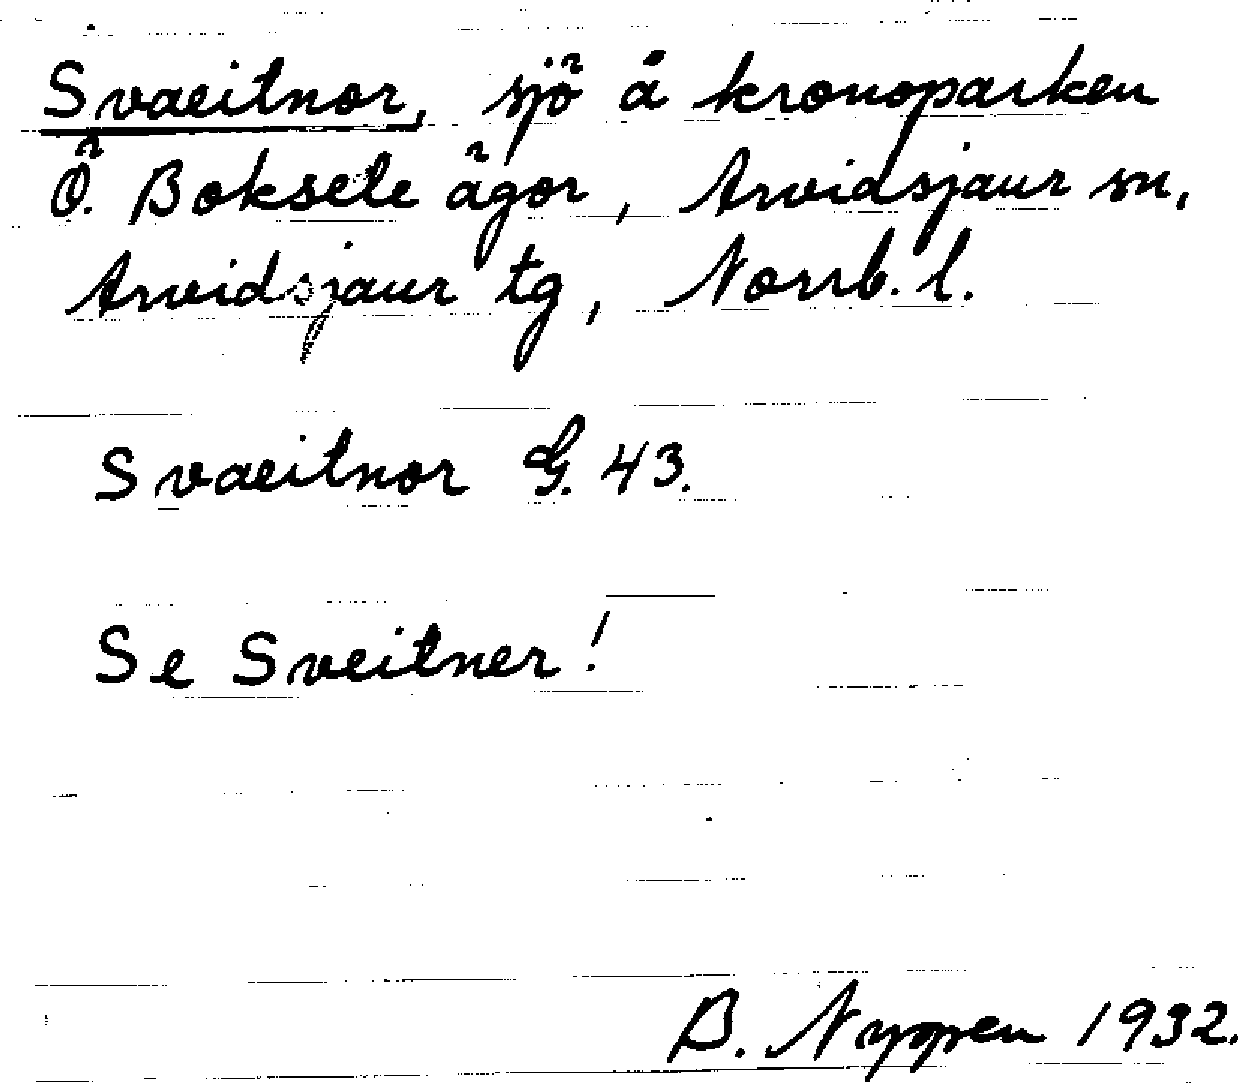 Svaeitnor, sjö å kronoparken
Ö. Boksele ägor, Arvidsjaur sn,
Arvidsjaur tg, Norrb. l.
Svaeitnor G. 43.
Se Sveitner!
B. Nyppen 1932.